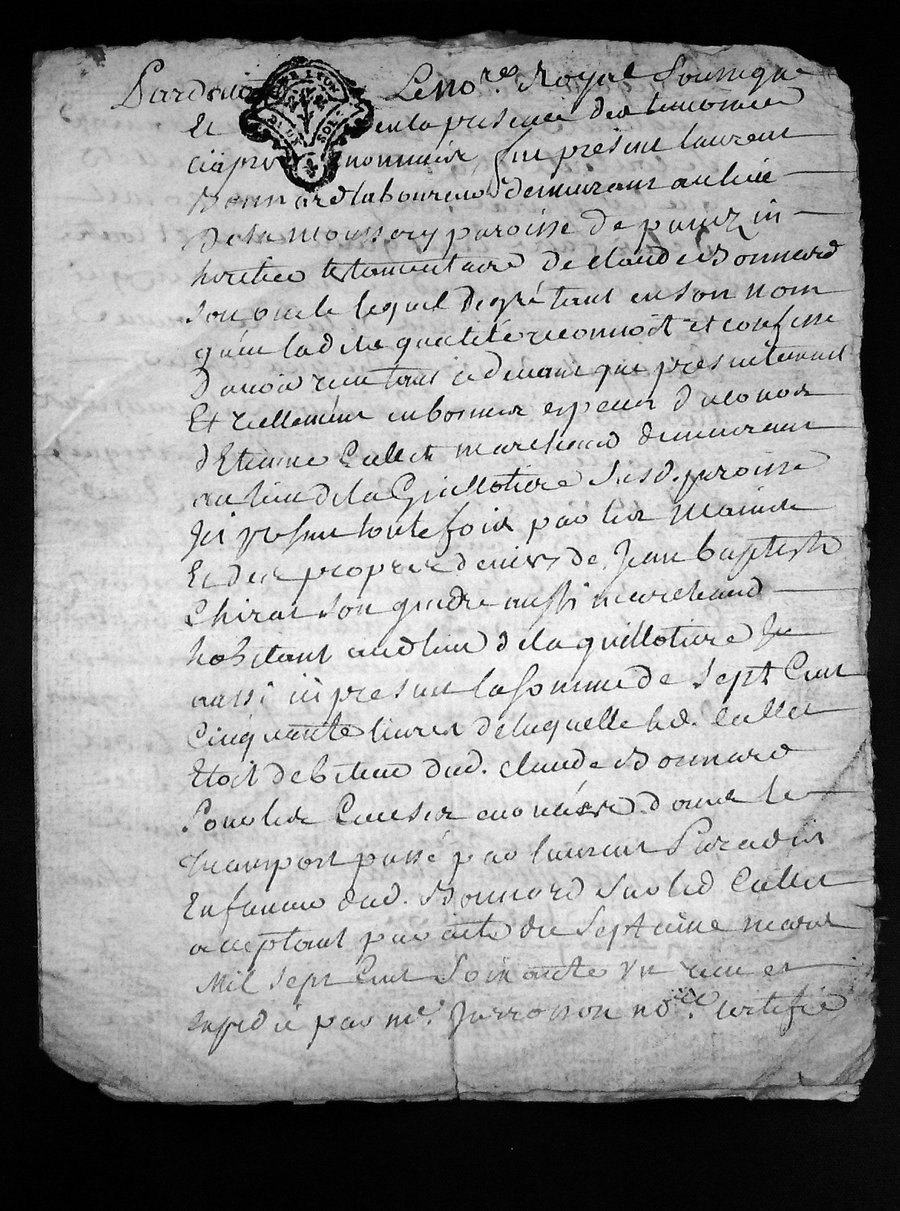 Pardevant Le No.re Royal Soussigné
Et en la presence des temoins
ciapres nommés fut present laurent
Bonnard laboureur demeurant au lieu
De la moussery paroisse de
heritier testamentaire de claude Bonnard
son oncle lequel De gré tant en son nom
qu'en ladite qualité reconnoit et confesse
D'avoir receu tant cidevant que presentement
Et reellement en bonnes especes du cours
d'Etienne Callet marchand demeurant
au lieu de la Guillotiere susd. paroisse
Ici present toutefois par les mains
Et des propres deniers de Jean baptiste
Chirat son gendre aussi marchand
habitant aud lieu de la guillotiere
aussi ici present la somme de sept Cent
Cinquante livres de laquelle led. Callet
Etoit debiteur dud. claude Bonnard
Pour les Causes enoncées dans le
transport passé par laurent Paradis
En faveur dud. Bonnard sur led Callet
acceptant par acte du septieme mars
Mil sept Cent soixante un receu et
expedié par me. no.re certifié